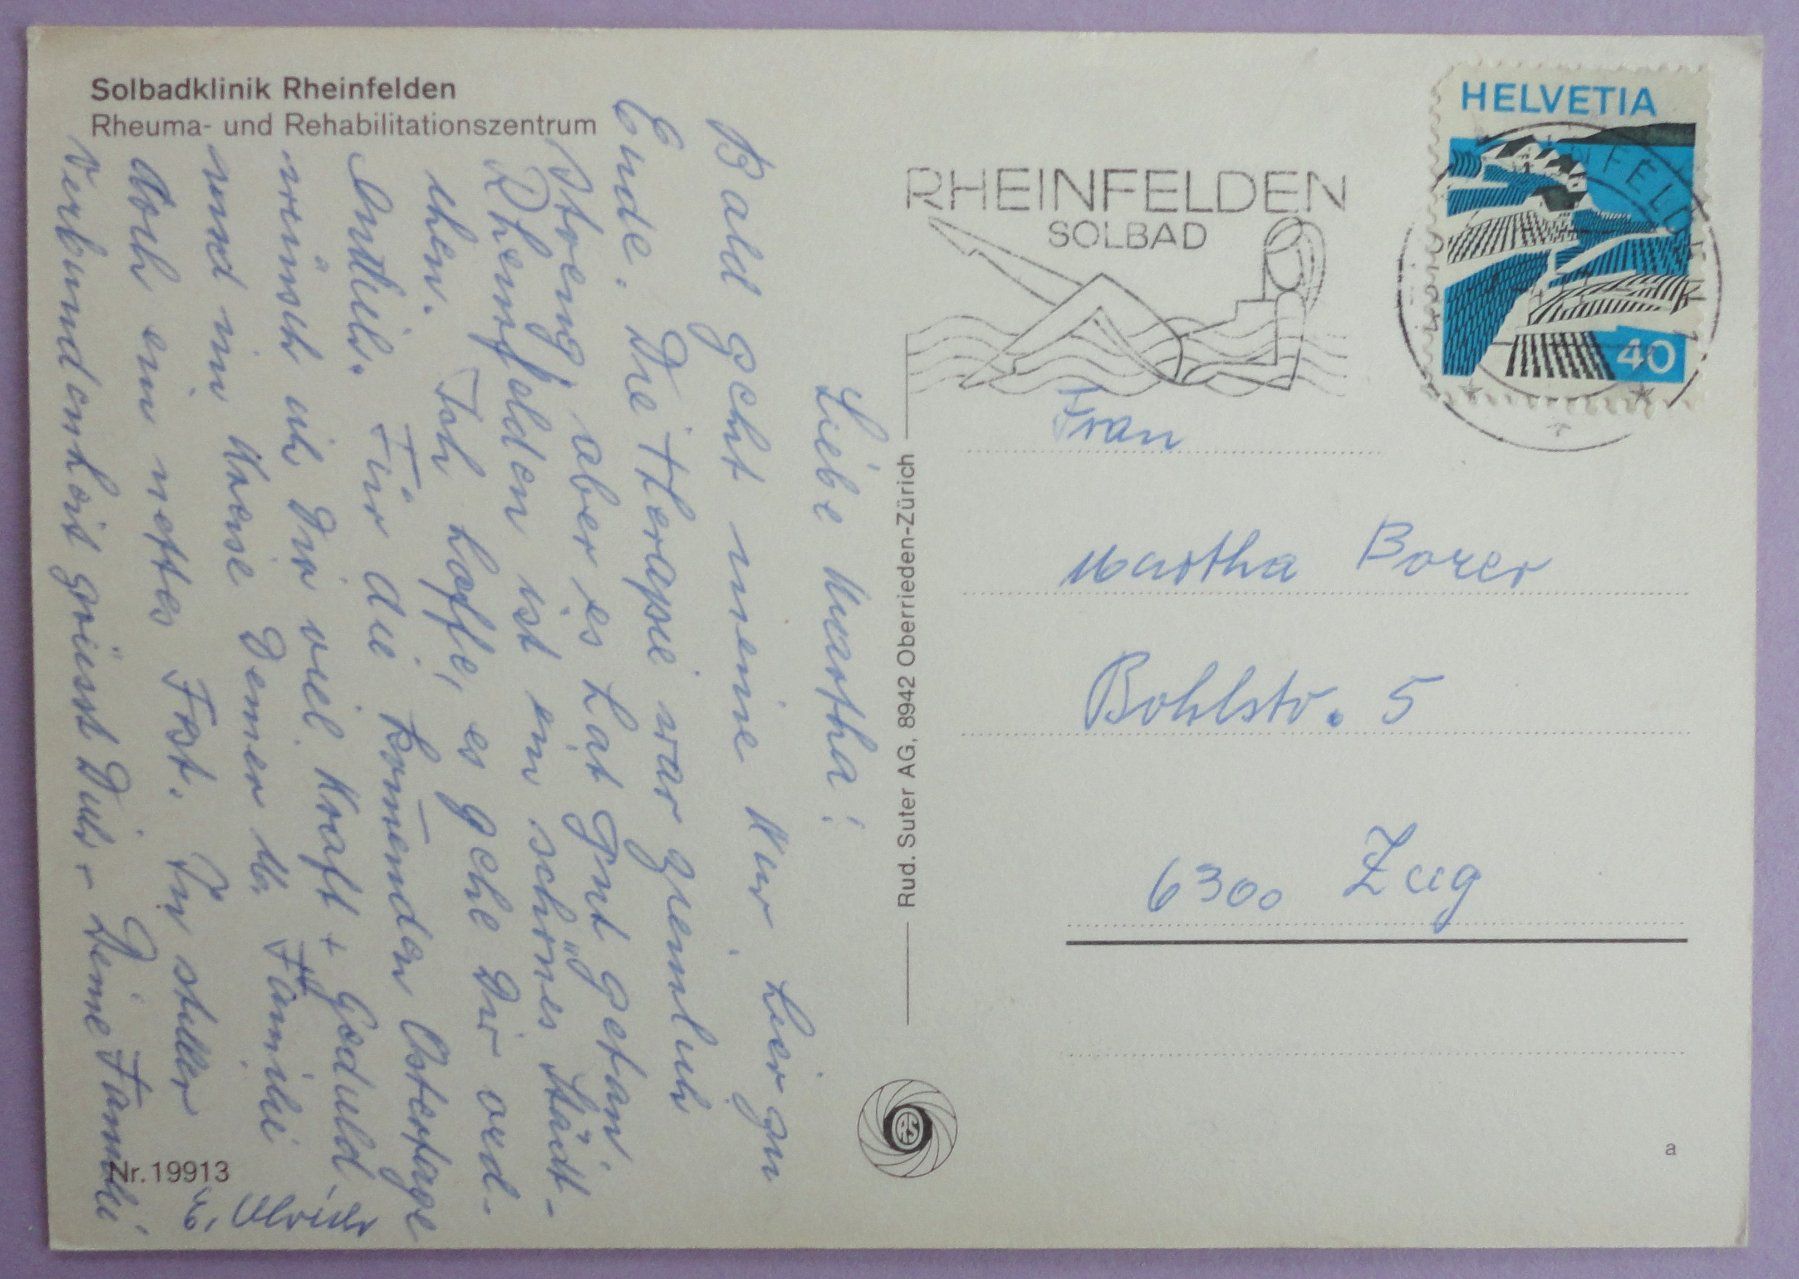 Solbadklinik Rheinfelden
Rheuma- und Rehabilitationszentrum
Liebe Martha!
Bald geht meine Kur hier zu
Ende. Die Therapie war ziemlich
streng, aber es hat gut getan.
Rheinfelden ist ein schönes Städt-
chen. Ich hoffe, es gehe Dir ord-
entlich. Für die kom̄enden Ostertage
wünsch ich Dir viel Kraft + Geduld
und im Kreise Deiner lb. Familie
doch ein nettes Fest. In stiller
Verbundenheit grüsst Dich - Deine Familie
Ulrich
Nr. 19913
Rud. Suter AG, 8942 Oberrieden-Zürich
RS
RHEINFELDEN
SOLBAD
HELVETIA
40
RHEINFELDEN
Frau
Martha Borer
Bohlstr. 5
6300 Zug
a